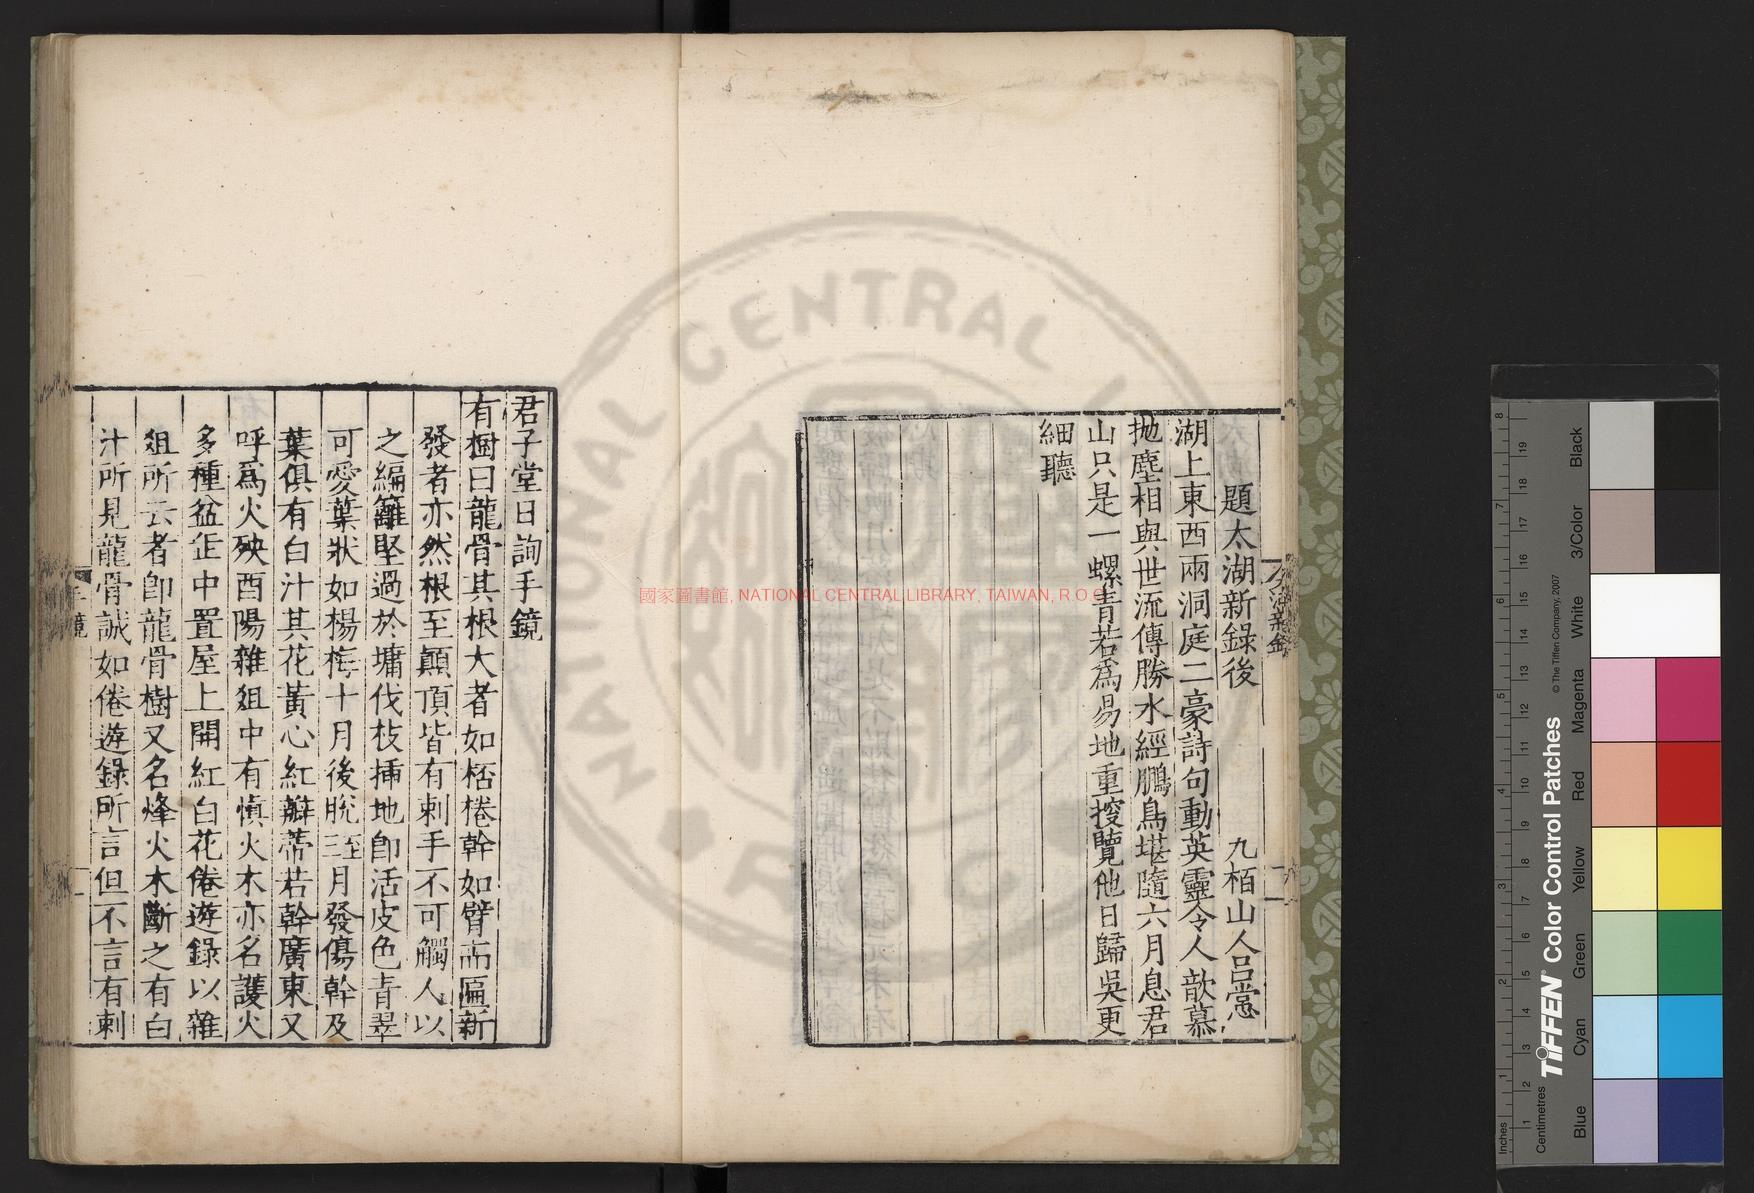 題太湖新錄後
九栢山人呂㦂
湖上東西兩洞庭二豪詩句動英靈令人歆慕
抛塵相與世流傳勝水經鵬鳥堪隨六月息君
山只是一螺青若爲易地重搜覽他日歸吳更
細聽
君子堂日詢手鏡
有樹曰龍骨其根大者如桮棬幹如臂而匾新
發者亦然根至顛頂皆有刺手不可觸人以
之編籬堅過於墉伐枝揷地卽活皮色青翠
可愛葉狀如楊梅十月後脫至三月發傷幹及
葉俱有白汁其花黃心紅瓣蒂若幹廣東又
呼爲火殃酉陽雜俎中有愼火木亦名護火
多種盆缶中置屋上開紅白花倦遊錄以雜
俎所云者卽龍骨樹又名烽火木斷之有白
汁所見龍骨誠如倦遊錄所言但不言有刺
手鏡
一
國家圖書館, NATIONAL CENTRAL LIBRARY, TAIWAN, R.O.C
NATIONAL CENTRAL L
Inches
Centimetres
TIFFEN® Color Control Patches
© The Tiffen Company, 2007
Blue
Cyan
Green
Yellow
Red
Magenta
White
3/Color
Black